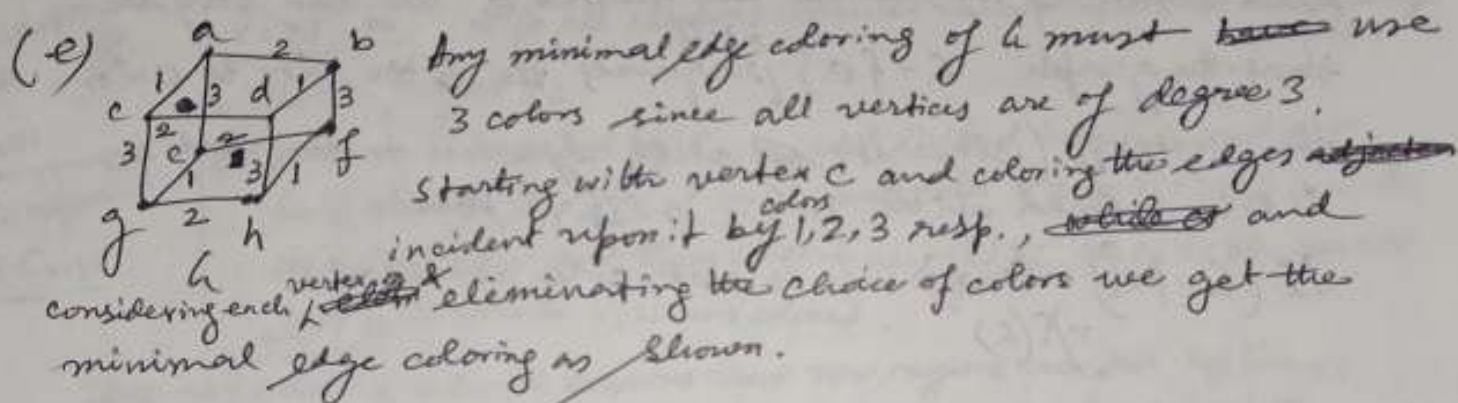 (e) a 2 b Any minimal edge coloring of G must use
1 3 d 1 3 3 colors since all vertices are of degree 3.
c 2 e 2 f starting with vertex c and coloring the edges
3 1 3 1 incident upon it by colors 1,2,3 resp., and
g 2 h
G
considering each vertex & eleminating the choice of colors we get the
minimal edge coloring as shown.